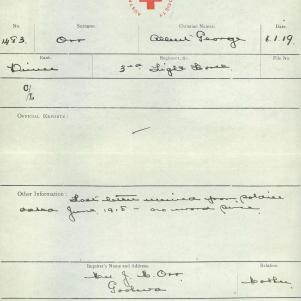 No. Surname. Christian Names. Date.
1483. Orr Albert George 8.1.19.
Rank. Regiment, &c. File No.
Driver 3rd Light Horse
C/
L
OFFICIAL REPORTS:
Other Information: Last letter received from soldier
dated June 1918 - no word since.
Inquirer's Name and Address. Relation.
Mrs J. C. Orr Mother
Goolwa